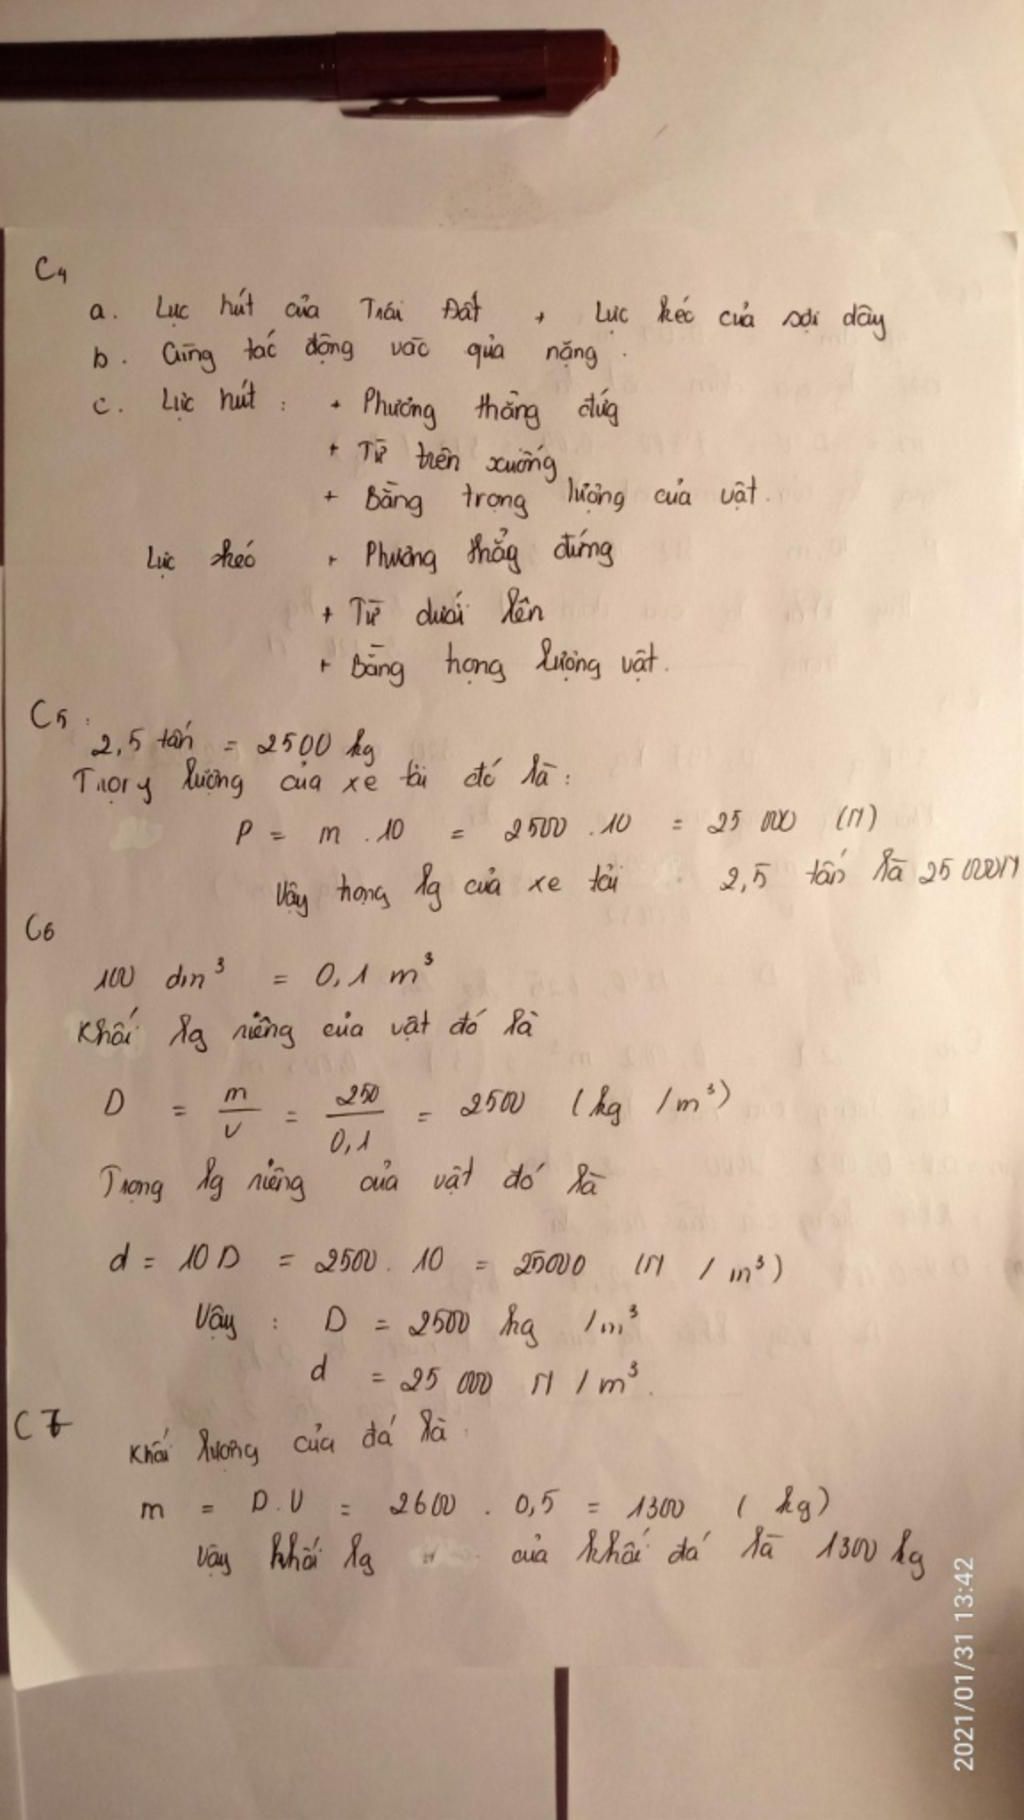 C4
a. Lực hút của Trái Đất + Lực kéo của sợi dây
b. Cùng tác động vào quả nặng.
c. Lực hút : + Phương thẳng đứg
+ Từ trên xuống
+ Bằng trọng lượng của vật.
Lực kéo + Phương thẳg đứng
+ Từ dưới lên
+ Bằng trọng lượng vật.
C5:
2,5 tấn = 2500 kg
Trọng lượng của xe tải đó là:
P = m . 10 = 2500 . 10 = 25 000 (N)
Vậy trọng lg của xe tải 2,5 tấn là 25 000N
C6
100 dm³ = 0,1 m³
Khối lg riêng của vật đó là
D = m/V = 250/0,1 = 2500 (kg /m³)
Trọng lg riêng của vật đó là
d = 10D = 2500 . 10 = 25000 (N / m³)
Vậy : D = 2500 kg /m³
d = 25 000 N / m³.
C7
Khối lượng của đá là
m = D.V = 2600 . 0,5 = 1300 (kg)
Vậy khối lg của khối đá là 1300 kg
2021/01/31 13:42